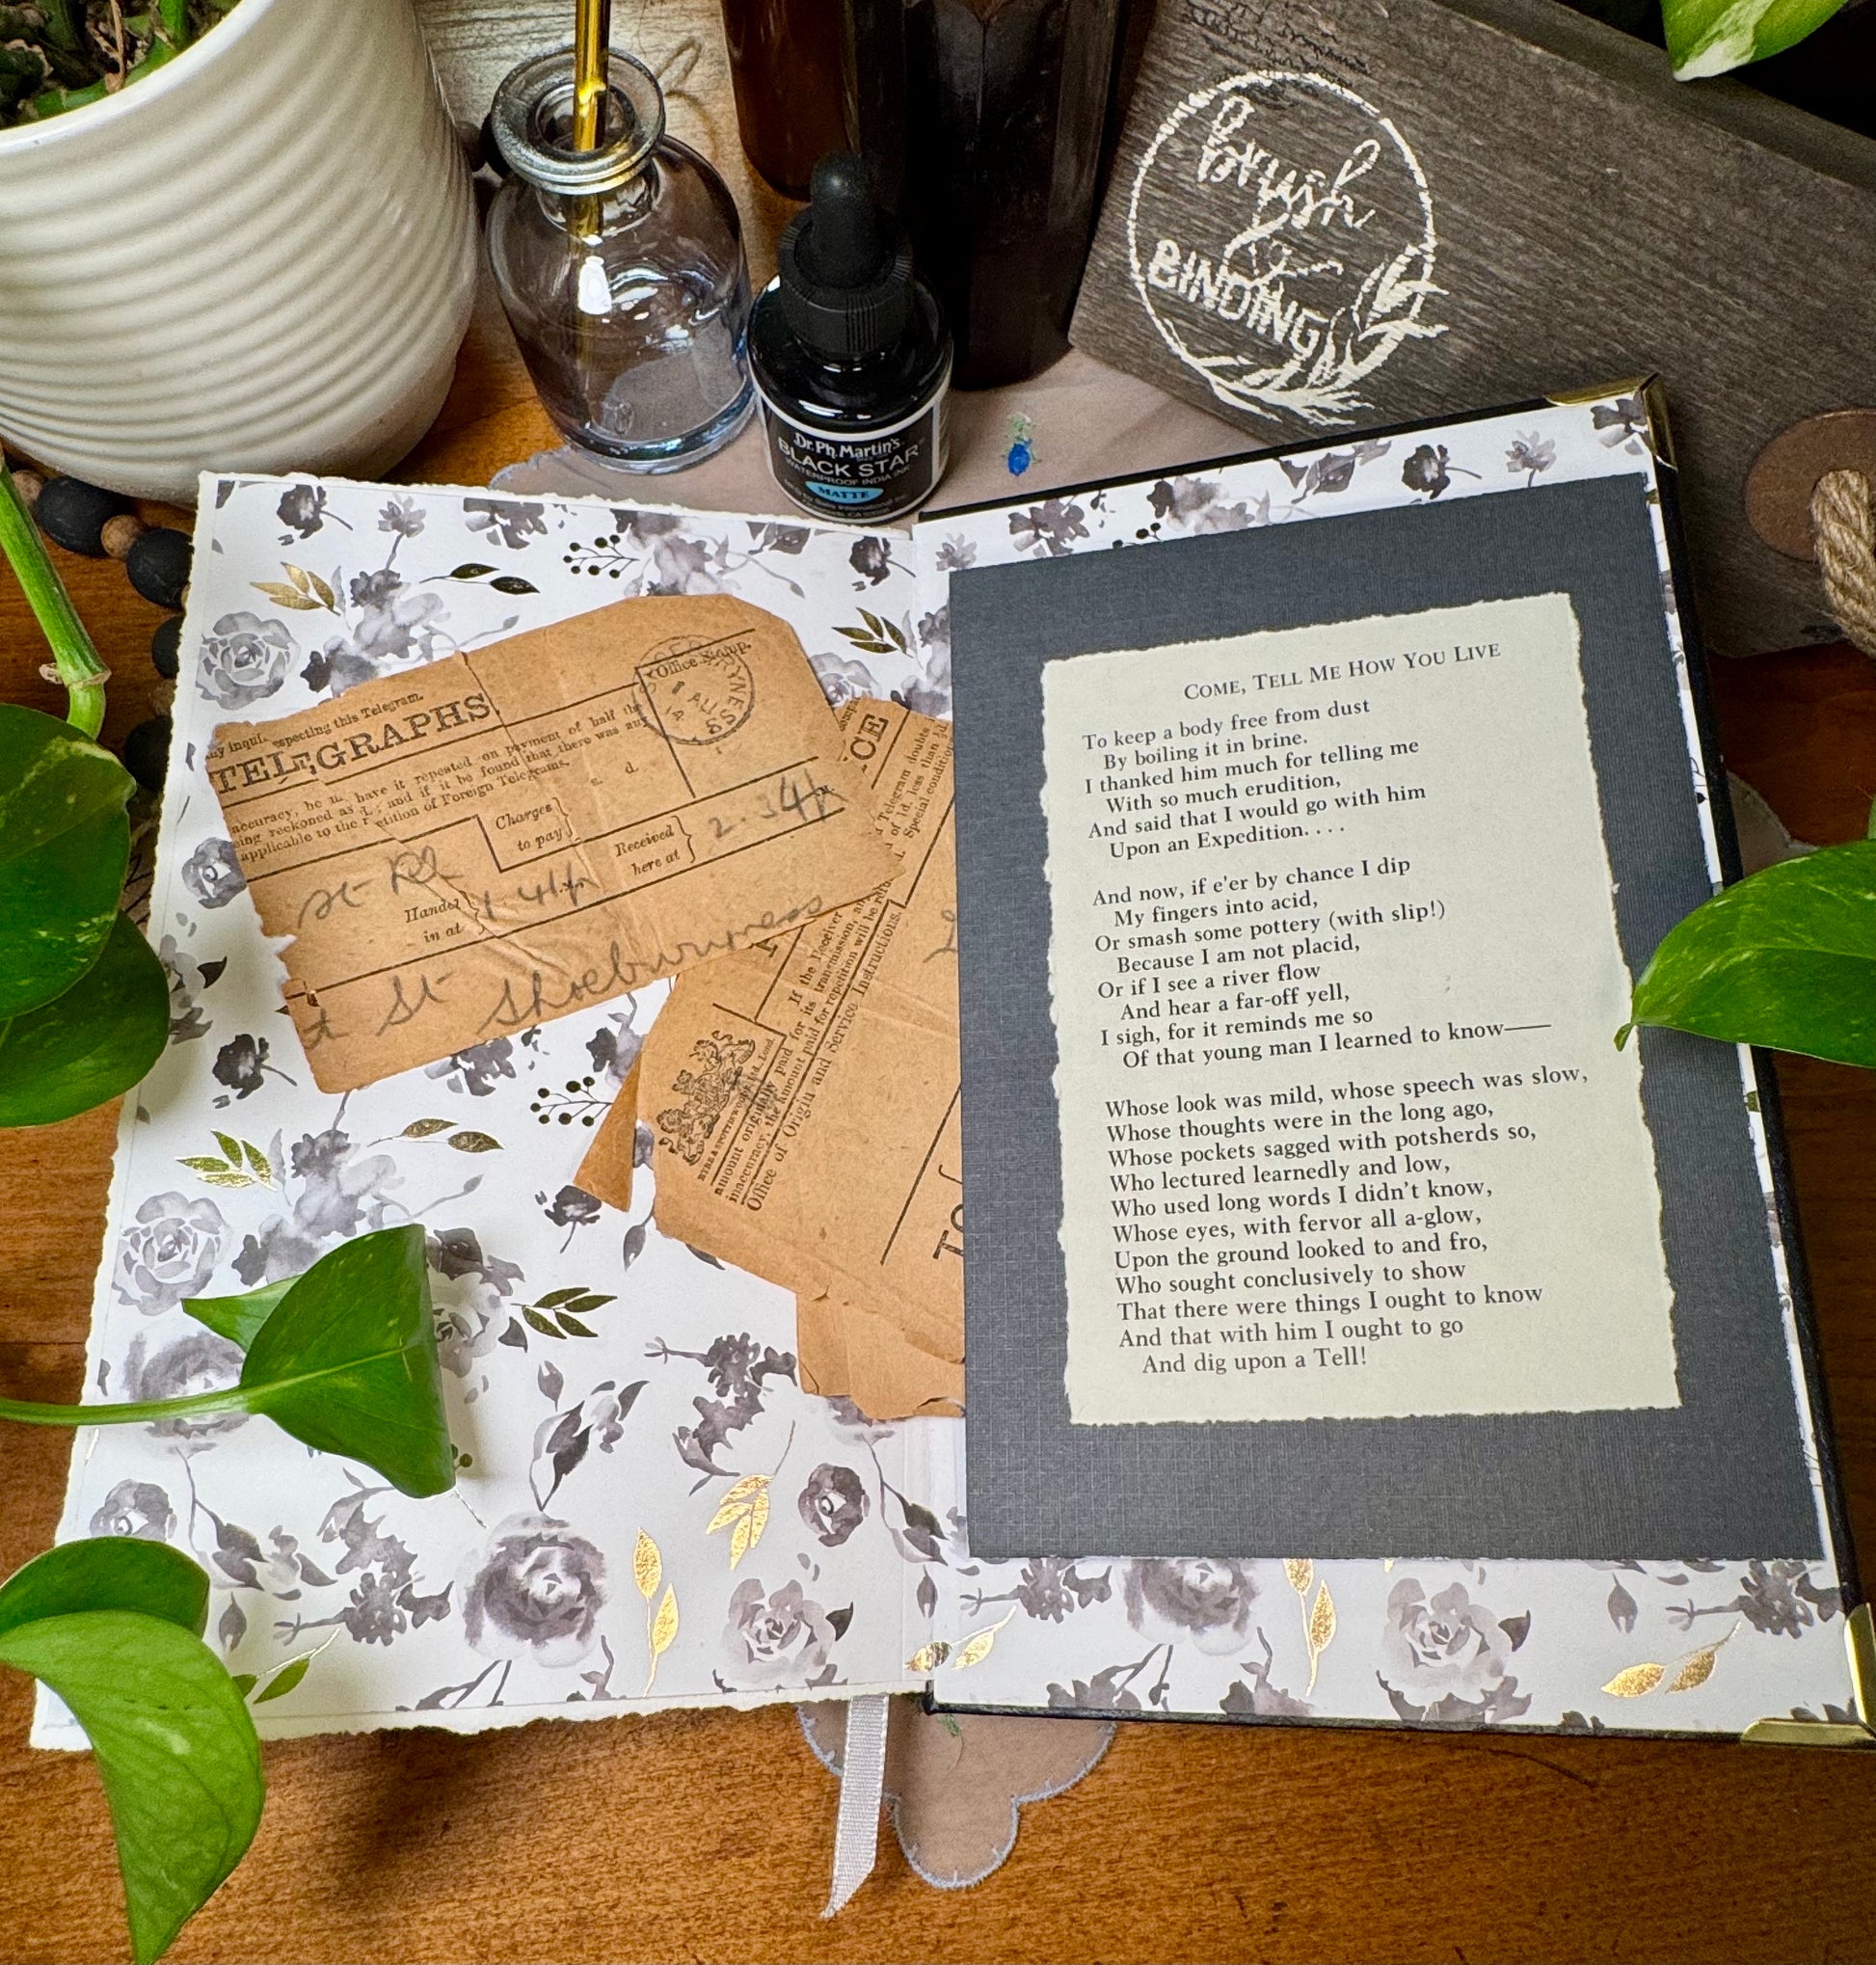 brush
&
BINDING
Dr. Ph. Martin's
BLACK STAR
WATERPROOF INDIA INK
MATTE
respecting this Telegram.
TELEGRAPHS.
Office Stamp.
SHOEBURYNESS
AU
14
accuracy, be have it repeated on payment of half the
being reckoned as and if it be found that there was any
applicable to the Repetition of Foreign Telegrams.
s. d.
Charges
to pay
Received
here at
2.34
Handed
in at
St Shoeburyness
If the Receiver
Office of Origin and Service Instructions.
TO
COME, TELL ME HOW YOU LIVE
To keep a body free from dust
By boiling it in brine.
I thanked him much for telling me
With so much erudition,
And said that I would go with him
Upon an Expedition. . . .
And now, if e'er by chance I dip
My fingers into acid,
Or smash some pottery (with slip!)
Because I am not placid,
Or if I see a river flow
And hear a far-off yell,
I sigh, for it reminds me so
Of that young man I learned to know——
Whose look was mild, whose speech was slow,
Whose thoughts were in the long ago,
Whose pockets sagged with potsherds so,
Who lectured learnedly and low,
Who used long words I didn't know,
Whose eyes, with fervor all a-glow,
Upon the ground looked to and fro,
Who sought conclusively to show
That there were things I ought to know
And that with him I ought to go
And dig upon a Tell!